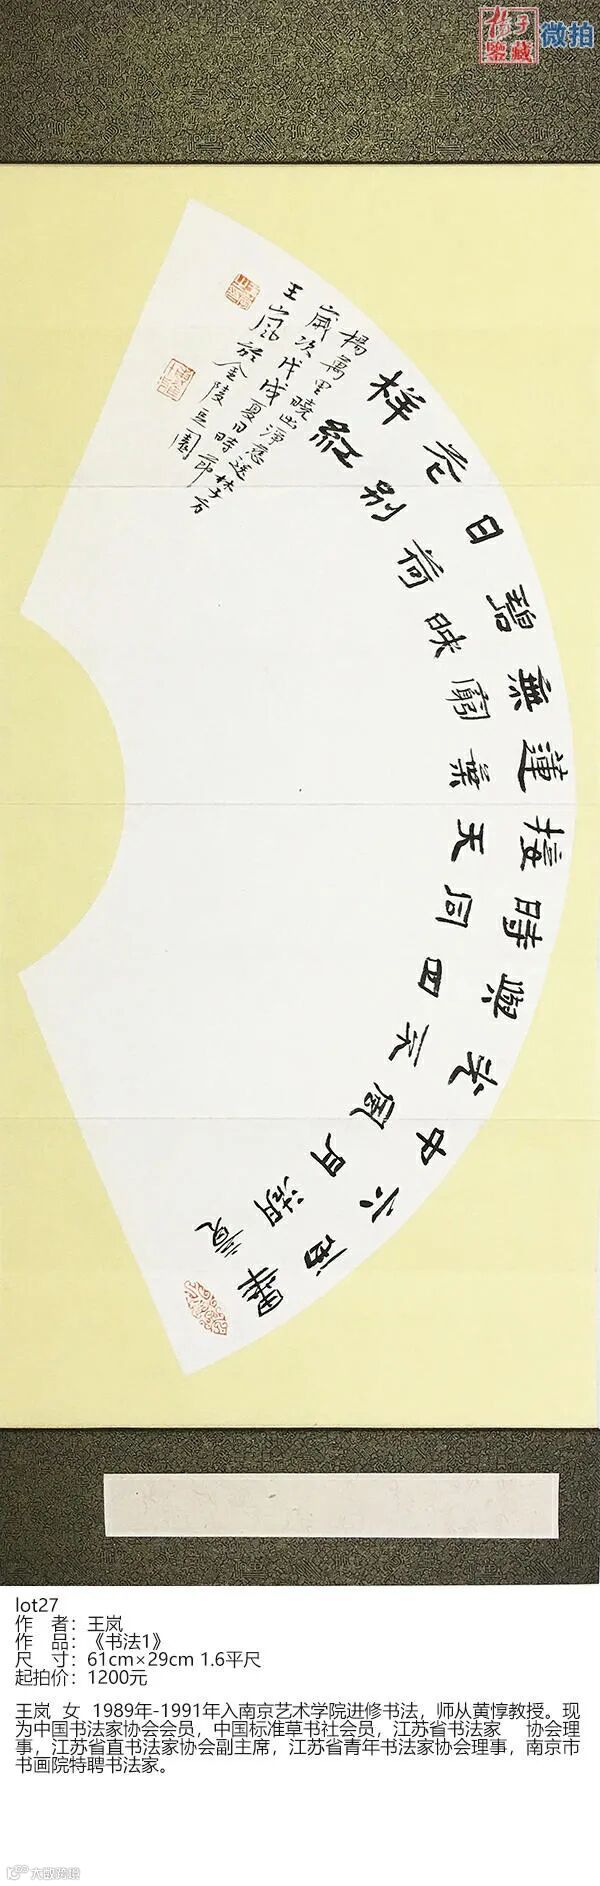 扬子
鉴藏
微拍
畢竟
西湖
六月
中風
光不
與四
時同
接天
蓮葉
無窮
碧映
日荷
花别
样紅
楊萬里曉出淨慈寺送林子方
歲次戊戌夏日時節
王嵐於金陵豆園
lot27
作 者：王岚
作 品：《书法1》
尺 寸：61cm×29cm 1.6平尺
起拍价：1200元
王岚 女 1989年-1991年入南京艺术学院进修书法，师从黄惇教授。现
为中国书法家协会会员，中国标准草书社会员，江苏省书法家 协会理
事，江苏省直书法家协会副主席，江苏省青年书法家协会理事，南京市
书画院特聘书法家。
大数跨境